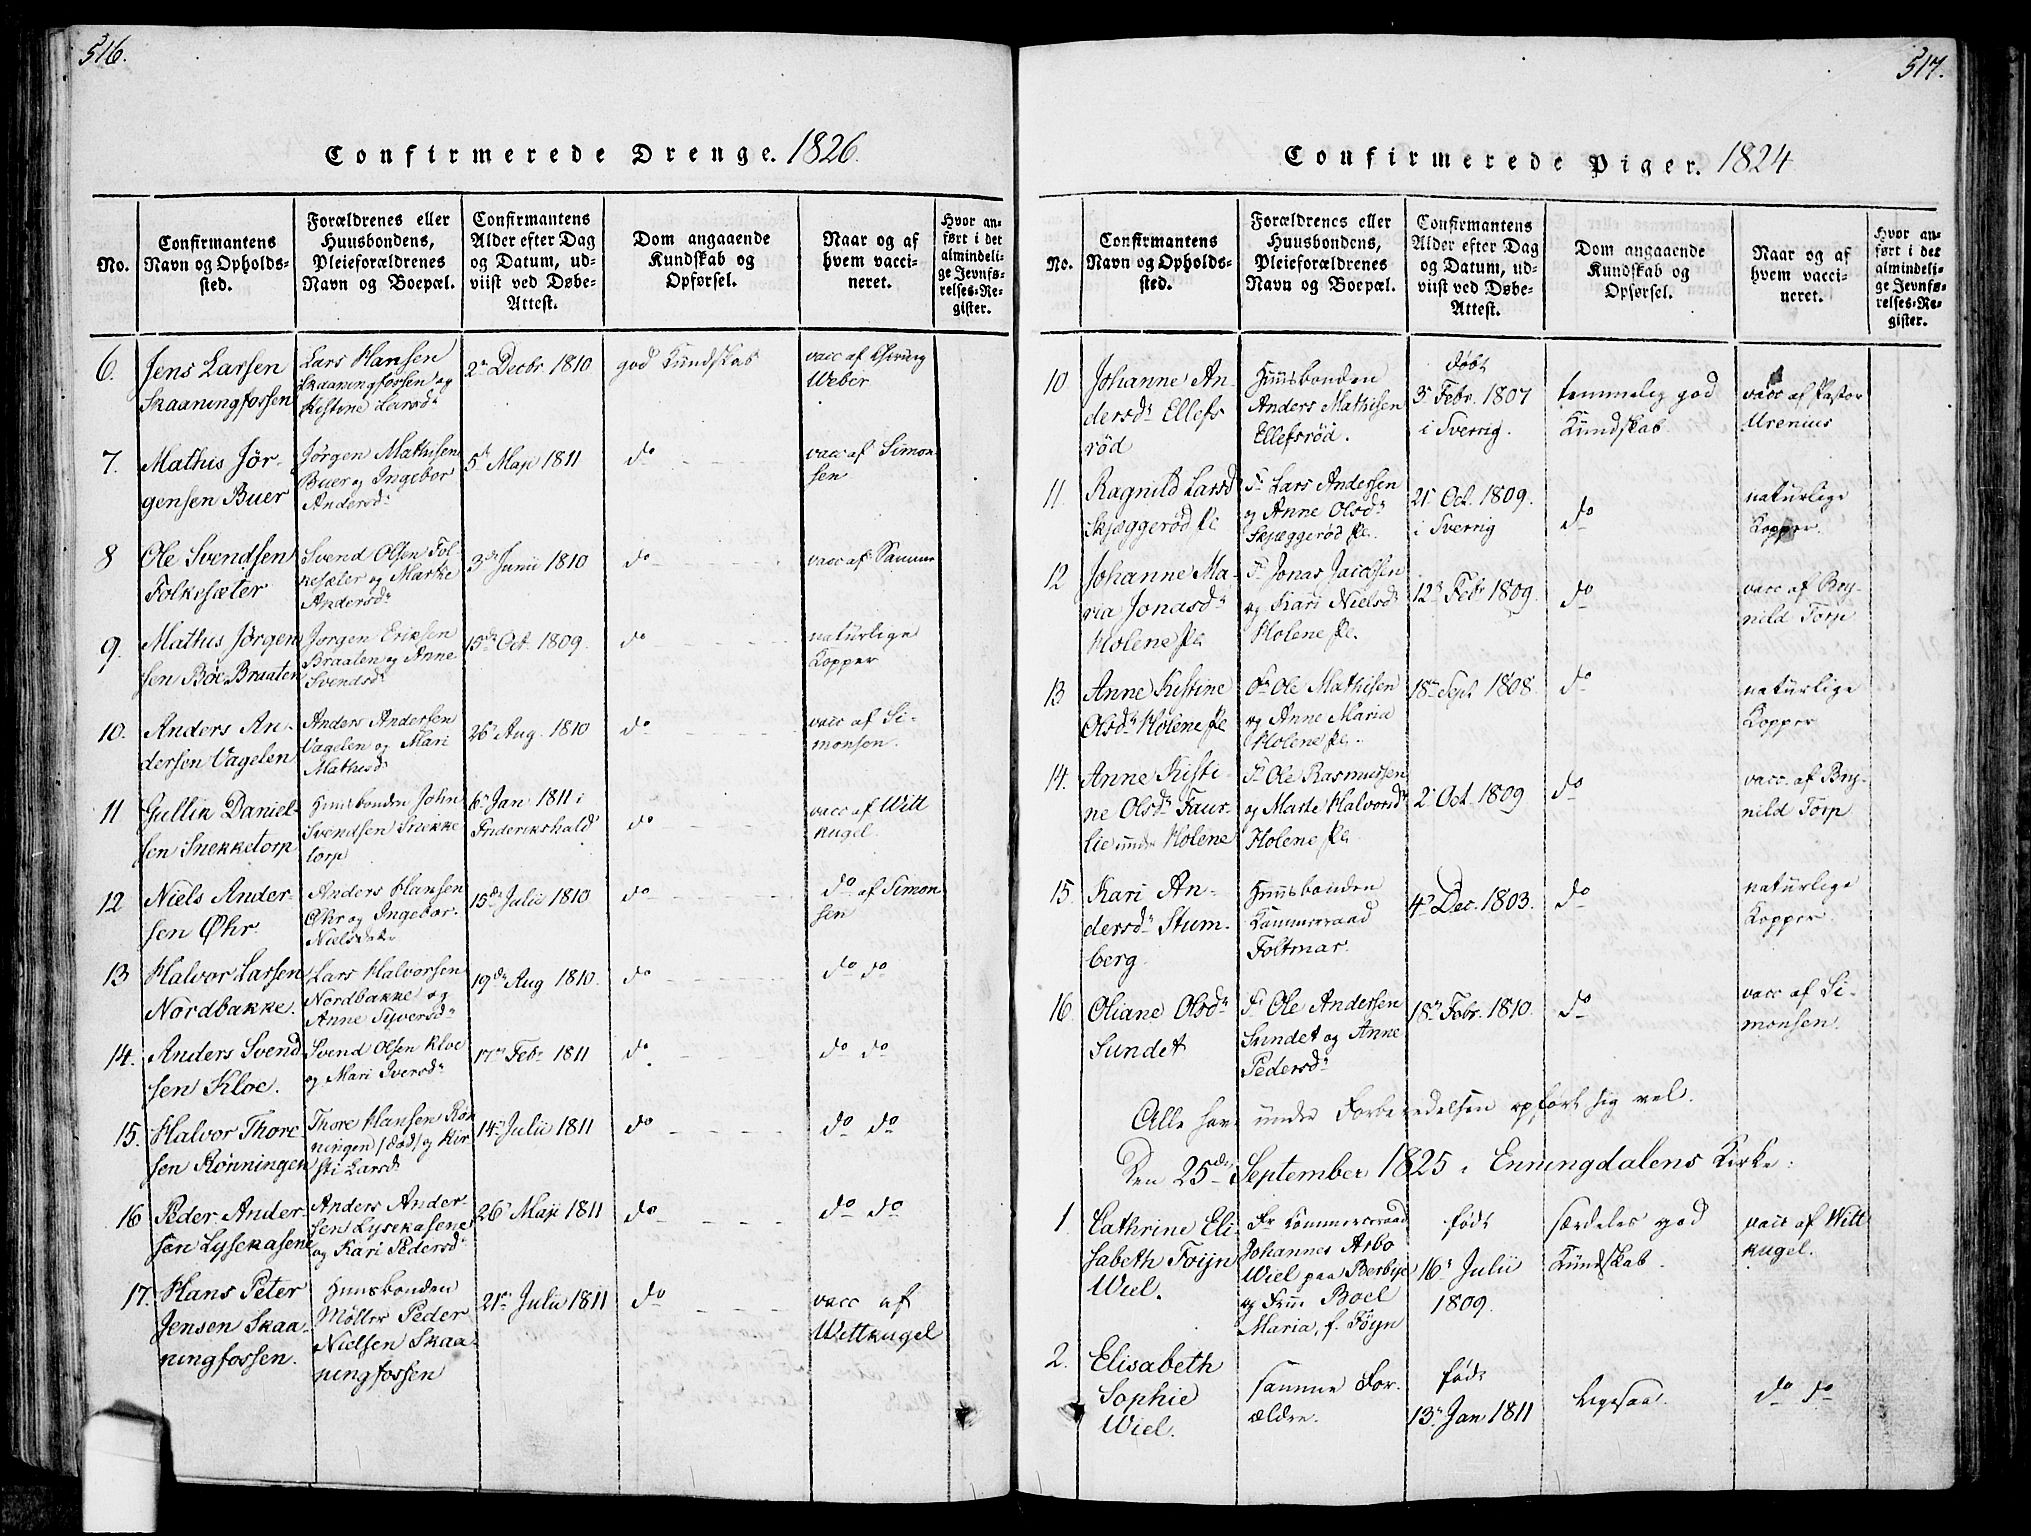 516.
Confirmerede Drenge. 1826.
No.
Confirmantens
Navn og Opholds-
sted.
Forældrenes eller
Huusbondens,
Pleieforældrenes
Navn og Boepæl.
Confirmantens
Alder efter Dag
og Datum, ud-
viist ved Døbe-
Attest.
Dom angaaende
Kundskab og
Opførsel.
Naar og af
hvem vacci-
neret.
Hvor an-
ført i det
almindeli-
ge Jevnfø-
relses-Re-
gister.
6.
Jens Larsen
Skaaningfossen
Lars Hansen
Skaaningfossen og
Kistine Larsd.
2n Decbr 1810
god Kundskab
vacc af
Weber
7.
Mathis Jör-
gensen Buer
Jörgen Mathisen
Buer og Ingebor
Andersd.
5te Maji 1811
do
vacc af Simon-
sen
8
Ole Svendsen
Folkesæter
Svend Olsen Fol-
kesæter og Marte
Andersd.
3die Junii 1810
do
vacc af Samme
9.
Mathis Jörgen
sen Böe Braaten
Jörgen Eriksen
Braaten og Anne
Svendsd.
15de Oct. 1809.
do
natürlige
Kopper
10.
Anders An-
dersen Vagelen
Anders Andersen
Vagelen og Mari
Mathisd
26. Aug. 1810
do
vacc af Si-
monsen.
11
Gullik Daniel-
sen Snekketorp
Huusbonden John
Svendsen Snekke
torp
6. Jan 1811 i
Frederikshald
do
vacc af Witt
kugel.
12
Niels Ander-
sen Øhr.
Anders Hansen
Øhr og Ingebor.
Nielsdtr.
15de Julii 1810
do
do af Simon
sen
13
Halvor Larsen
Nordbakke.
Lars Halvorsen
Nordbakke og
Anne Syversd.
19de Aug 1810.
do
do do
14.
Anders Svend
sen Kloe.
Svend Olsen Kloe
og Mari Iversd.
17n Febr 1811
do
do do
15.
Halvor Thore
sen Rönningen
Thore Hansen Rön
ningen (död) og Kir
sti Larsd
14n Julii 1811
do
do do
16
Peder Ander-
sen Lysekasene
Anders Ander-
sen Lysekasene
og Kari Pedersd.
26. Maji 1811
do
do do
17.
Hans Peter
Jensen Skaa-
ningfossen.
Huusbonden
Möller Peder
Nielsen Skaa-
ningfossen
21n Julii 1811
do
vacc af
Wittkugel
517.
Confirmerede Piger. 1824
No.
Confirmantens
Navn og Opholds-
sted.
Forældrenes eller
Huusbondens,
Pleieforældrenes
Navn og Boepæl.
Confirmantens
Alder efter Dag
og Datum, ud-
viist ved Døbe-
Attest.
Dom angaaende
Kundskab og
Opførsel.
Naar og af
hvem vacci-
neret.
Hvor an-
ført i det
almindeli-
ge Jevnfø-
relses-Re-
gister.
10
Johanne An-
dersd. Ellefs
röd
Huusbonden
Anders Mathisen
Ellefsröd.
döbt
3. Febr. 1807
i Sverrig.
temmelig god
Kundskab.
vacc af Pastor
Urenius
11.
Ragnild Larsd
Skjæggeröd Pl
Fr Lars Andersen
og Anne Olsd.
Skjæggeröd Pl.
21 Oct. 1809.
i Sverrig
do
natürlige
Kopper.
12
Johanne Ma-
ria Jonasd.
Holene Pl
Fr Jonas Jacobsen
og Kari Nielsd.
Holene Pl.
12. Febr 1809.
do
vacc af Bry-
nild Torp
13
Anne Kistine
Olsd. Holene Pl
Fr Ole Mathisen
og Anne Maria
Holene Pl.
18n Sept 1808.
do
natürlige
Kopper
14.
Anne Kisti-
ne Olsd. Faur-
lie under Holene
Fr Ole Rasmussen
og Marte Halvorsd.
Holene Pl
2. Oct. 1809
do
vacc. af Bry-
nild Torp
15.
Kari An-
dersd. Stum-
berg.
Huusbonden
Kammerraad
Foltmar.
4. Dec. 1803.
do
natürlige
Kopper.
16.
Oliane Olsd.
Sundet
Fr Ole Andersen
Sundet og Anne
Pedersd.
18n Febr. 1810.
do
vacc af Si-
monsen.
Alle have under Forberedelsen opfört sig vel.
Den 25de September 1825 i Enningdalens Kirke:
1.
Cathrine Eli-
sabeth Foijn
Wiel.
Fr Kammerraad
Johannes Arbo
Wiel paa Berbye
og Frue Boel
Maria, f. Föyn
födt
16. Julii
1809.
særdeles god
Kundskab.
vacc af Witt
kugel.
2.
Elisabeth
Sophie
Wiel.
samme For-
ældre.
födt
13. Jan 1811
Ligesaa.
do do